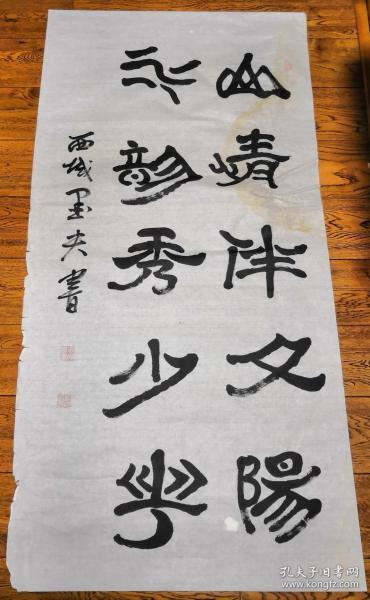 山情伴夕陽
水韵秀少華
西域墨夫書
孔夫子旧书网
www.kongfz.com